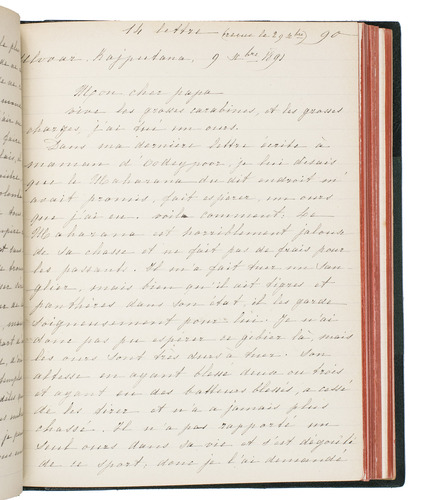 14 lettre (reçue le 29 xbre) 90
Ulvour. Rajputana, 9 xbre 1891
Mon cher papa
vive les grosses carabines, et les grosses
charges, j'ai tué un ours.
Dans ma dernière lettre écrite à
maman d'Oodeypoor, je lui disais
que le Maharana du dit endroit m'
avait promis, fait espérer, un ours
que j'ai eu. voila comment: le
Maharana est horriblement jaloux
de sa chasse et ne fait pas de frais pour
les passants. Il m'a fait tuer un san
glier, mais bien qu'il ait tigres et
panthères dans son état, il les garde
soigneusement pour lui. Je n'ai
donc pas pu esperer ce gibier là, mais
les ours sont très durs à tuer. Son
altesse en ayant blessé deux ou trois
et ayant eu des batteurs blessés, a cessé
de les tirer et n'en a jamais plus
chassé. Il n'a pas rapporté un
seul ours dans sa vie et s'est dégoûté
de ce sport, donc je l'ai demandé